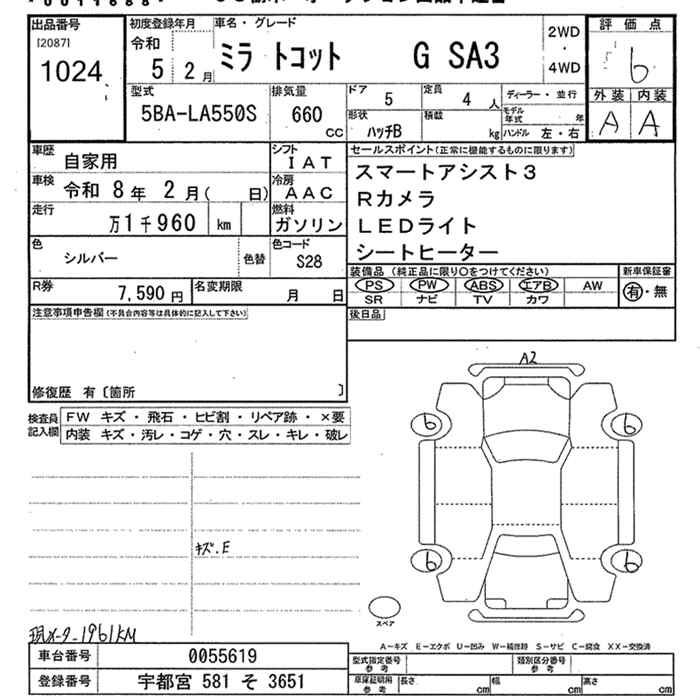 出品番号 初度登録年月 車名・グレード 2WD・4WD 評価点
[2087]
1024
令和 5 2月 ミラ トコット G SA3 6
外装 内装
A A
型式 排気量 ドア 定員 ディーラー・並行
5BA-LA550S 660 cc 5 4 人 モデル年式 年
形状 積載
ハッチB kg ハンドル 左・右
車歴 自家用 シフト IAT
車検 令和 8年 2月( 日) 冷房 AAC
走行 万1千960 km 燃料 ガソリン
色 シルバー 色替 色コード S28
R券 7,590円 名変期限 月 日
セールスポイント(正常に機能するものに限ります)
スマートアシスト3
Rカメラ
LEDライト
シートヒーター
装備品(純正品に限り○をつけてください) 新車保証書
PS PW ABS エアB AW 有・無
SR ナビ TV カワ
後日品
注意事項申告欄(不具合内容等は具体的に記入して下さい)
修復歴 有〔箇所 〕
検査員記入欄
FW キズ・飛石・ヒビ割・リペア跡・×要
内装 キズ・汚レ・コゲ・穴・スレ・キレ・破レ
A2
6 6
6 6
キズ.E
スペア
現メータ-1961KM
A-キズ E-エクボ U-凹み W-補修跡 S-サビ C-腐食 XX-交換済
車台番号 0055619
登録番号 宇都宮 581 そ 3651
型式指定番号 参考 類別区分番号 参考
車庫証明用 参考 長さ cm 幅 cm 高さ cm